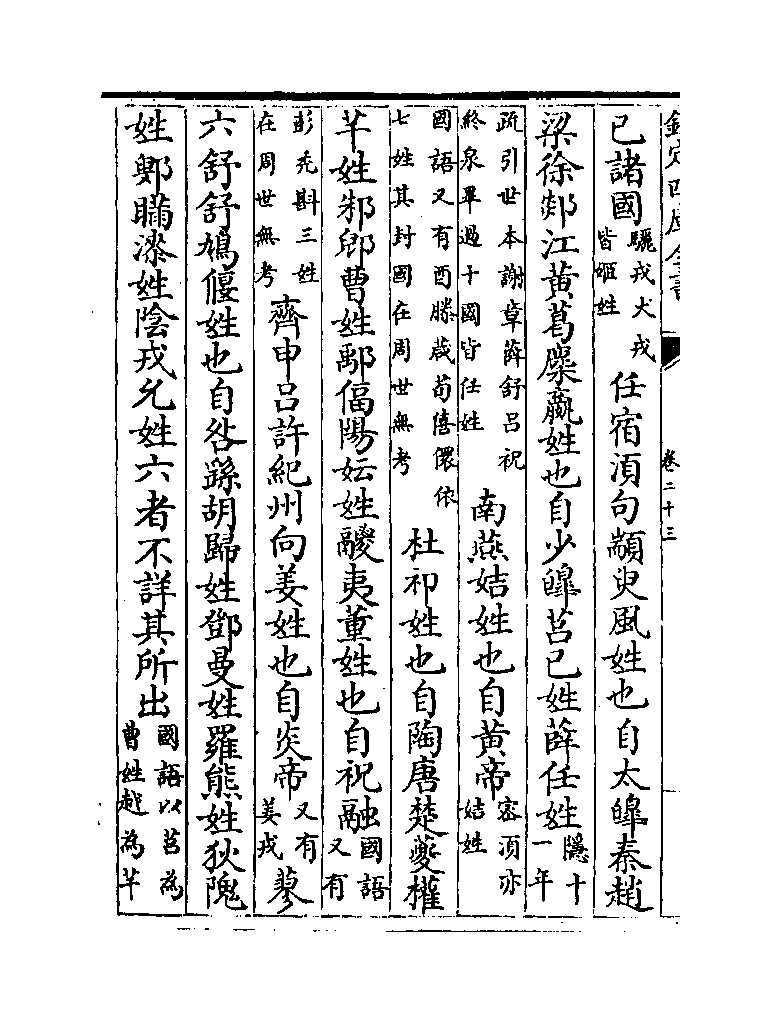 欽定四庫全書 卷二十三
已諸國驪戎犬戎皆姬姓任宿湏句顓臾風姓也自太皥秦趙
梁徐郯江黃葛麇嬴姓也自少皥莒已姓薛任姓隱十一年
疏引世本謝章薛舒呂祝終泉畢過十國皆任姓南燕姞姓也自黃帝宻湏亦姞姓
國語又有酉滕葴荀僖儇依七姓其封國在周世無考杜祁姓也自陶唐楚夔權
芊姓邾郳曹姓鄅偪陽妘姓鬷夷董姓也自祝融國語又有
彭禿斟三姓在周世無考齊申呂許紀州向姜姓也自炎帝又有姜戎蓼
六舒舒鳩偃姓也自咎繇胡歸姓鄧曼姓羅熊姓狄隗
姓鄋瞞漆姓陰戎允姓六者不詳其所出國語以莒為曹姓越為芊